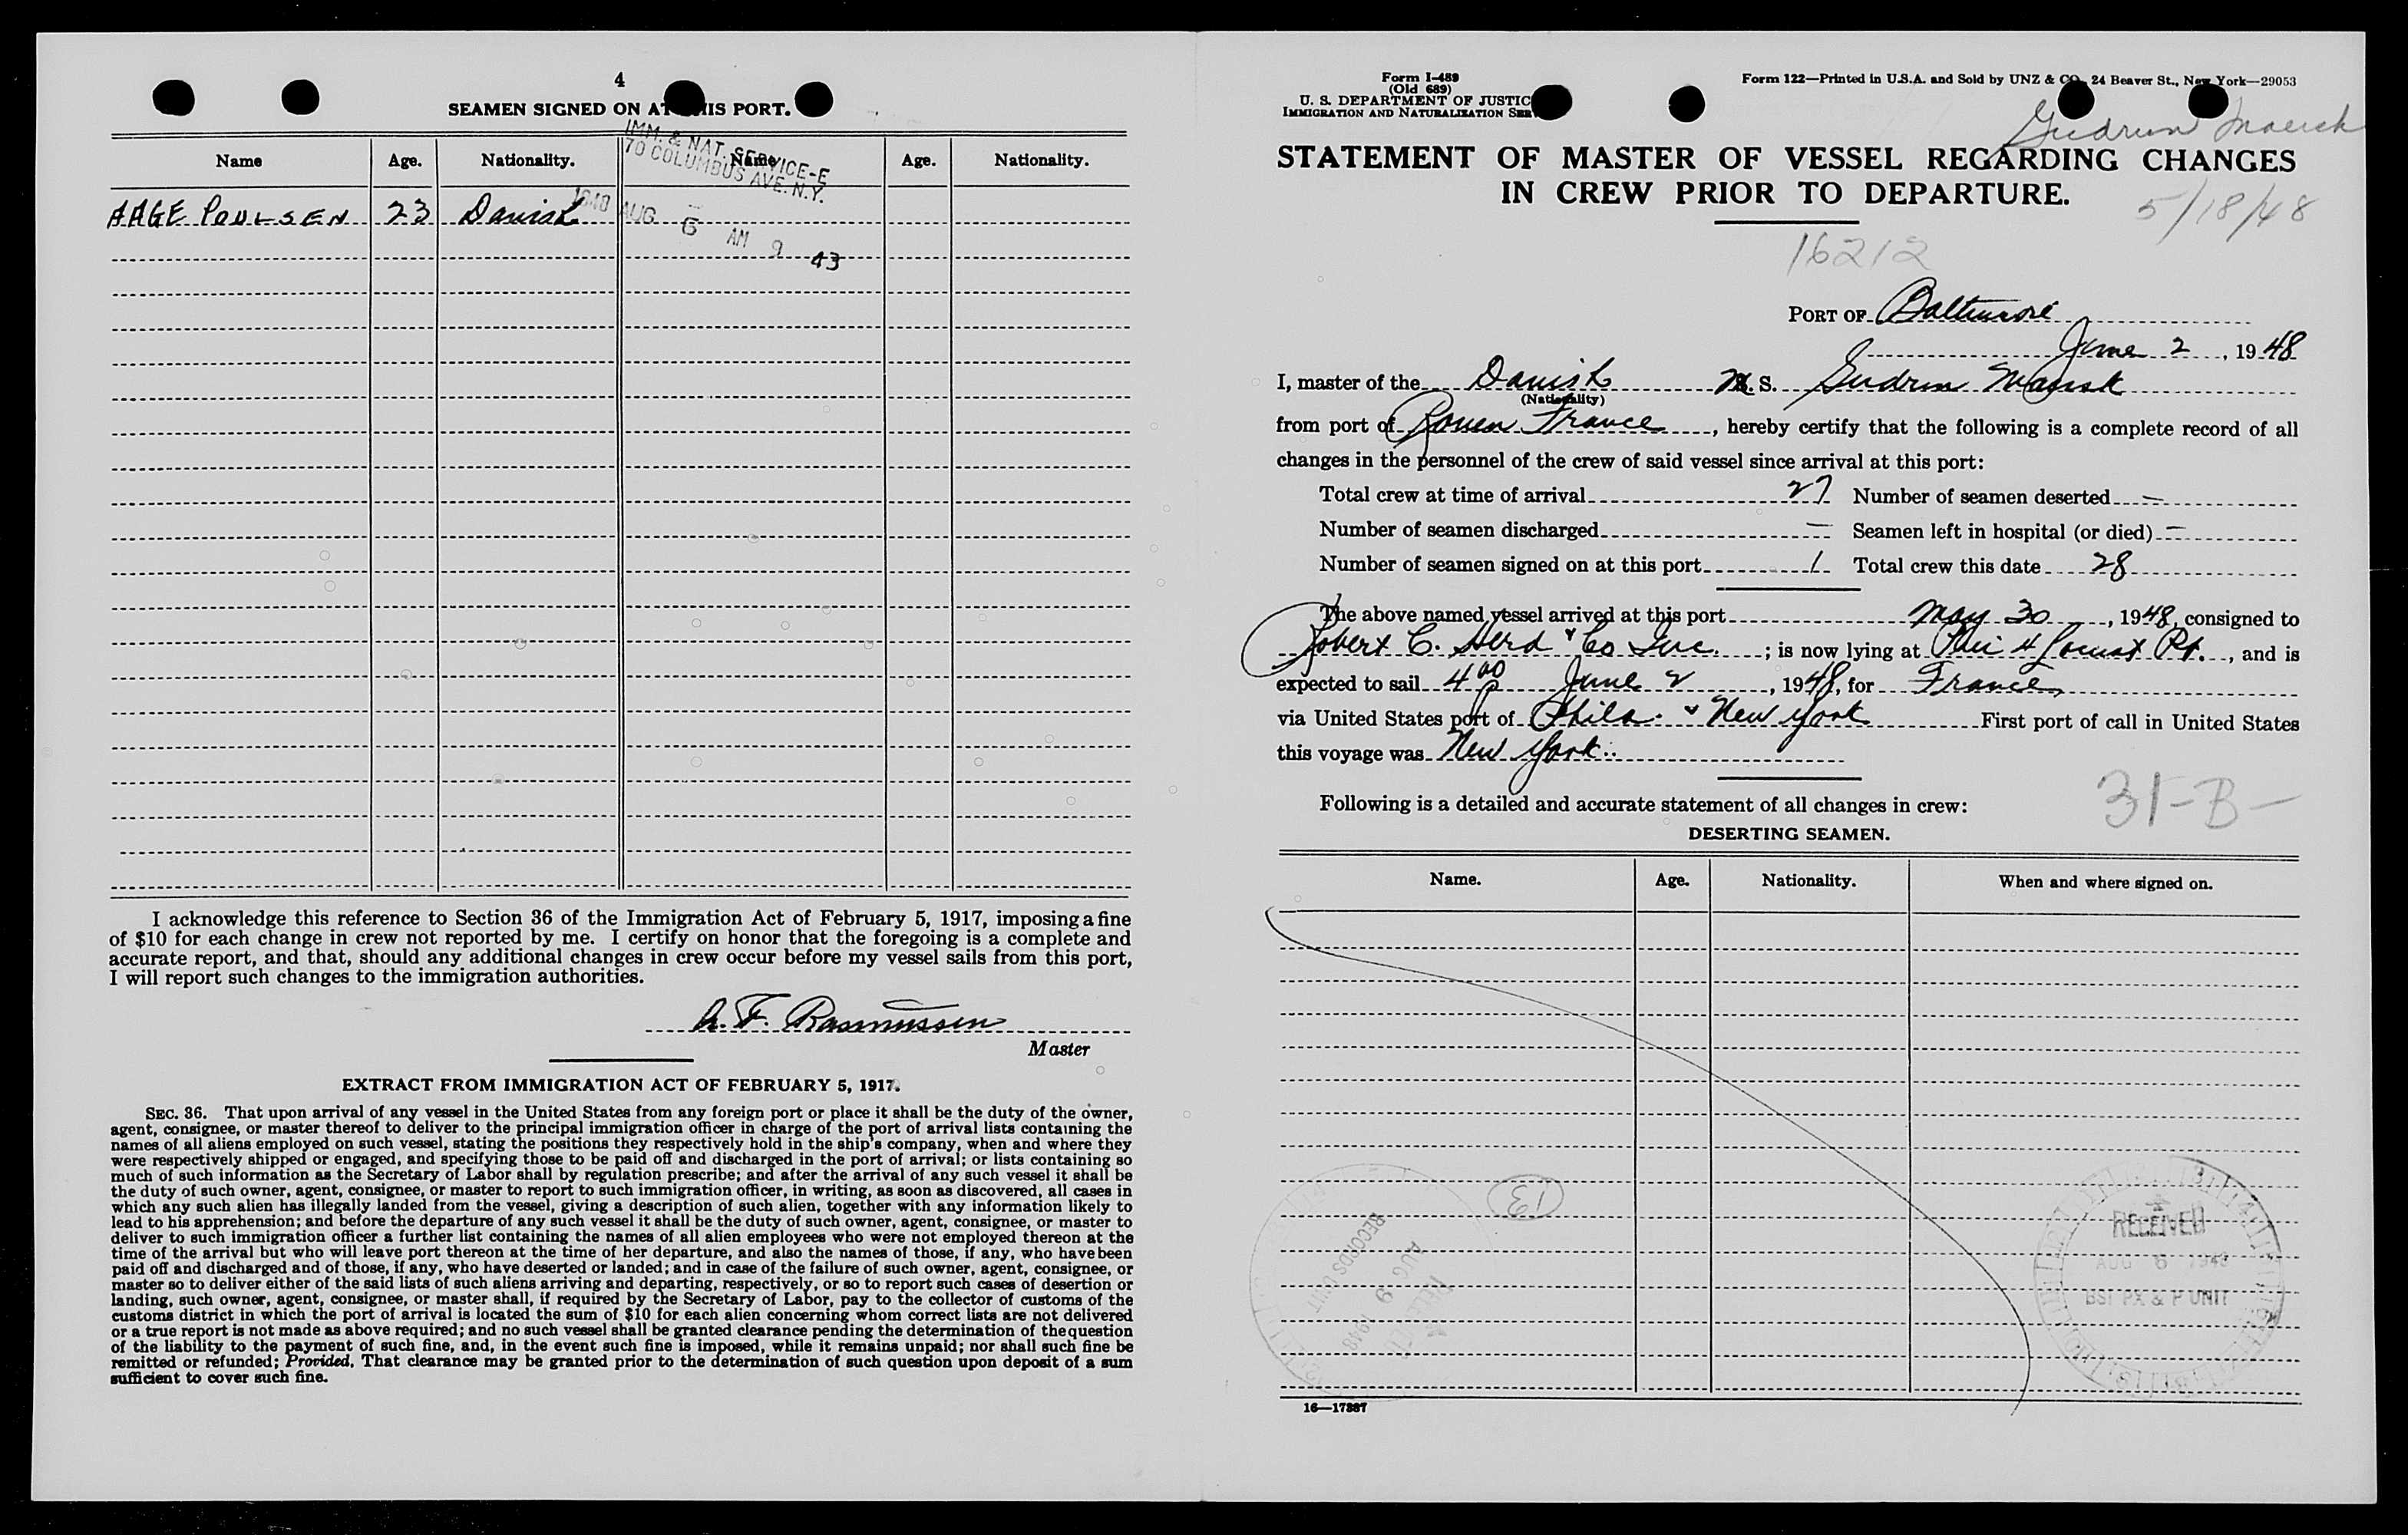 4
SEAMEN SIGNED ON AT THIS PORT.
IMM. & NAT. SERVICE-E
70 COLUMBUS AVE. N.Y.
1948 AUG 6 AM 9 43
Name Age. Nationality. Name Age. Nationality.
AAGE POULSEN 23 Danish
I acknowledge this reference to Section 36 of the Immigration Act of February 5, 1917, imposing a fine
of $10 for each change in crew not reported by me. I certify on honor that the foregoing is a complete and
accurate report, and that, should any additional changes in crew occur before my vessel sails from this port,
I will report such changes to the immigration authorities.
A. F. Rasmussen
Master
EXTRACT FROM IMMIGRATION ACT OF FEBRUARY 5, 1917.
SEC. 36. That upon arrival of any vessel in the United States from any foreign port or place it shall be the duty of the owner,
agent, consignee, or master thereof to deliver to the principal immigration officer in charge of the port of arrival lists containing the
names of all aliens employed on such vessel, stating the positions they respectively hold in the ship's company, when and where they
were respectively shipped or engaged, and specifying those to be paid off and discharged in the port of arrival; or lists containing so
much of such information as the Secretary of Labor shall by regulation prescribe; and after the arrival of any such vessel it shall be
the duty of such owner, agent, consignee, or master to report to such immigration officer, in writing, as soon as discovered, all cases in
which any such alien has illegally landed from the vessel, giving a description of such alien, together with any information likely to
lead to his apprehension; and before the departure of any such vessel it shall be the duty of such owner, agent, consignee, or master to
deliver to such immigration officer a further list containing the names of all alien employees who were not employed thereon at the
time of the arrival but who will leave port thereon at the time of her departure, and also the names of those, if any, who have been
paid off and discharged and of those, if any, who have deserted or landed; and in case of the failure of such owner, agent, consignee, or
master so to deliver either of the said lists of such aliens arriving and departing, respectively, or so to report such cases of desertion or
landing, such owner, agent, consignee, or master shall, if required by the Secretary of Labor, pay to the collector of customs of the
customs district in which the port of arrival is located the sum of $10 for each alien concerning whom correct lists are not delivered
or a true report is not made as above required; and no such vessel shall be granted clearance pending the determination of the question
of the liability to the payment of such fine, and, in the event such fine is imposed, while it remains unpaid; nor shall such fine be
remitted or refunded; Provided, That clearance may be granted prior to the determination of such question upon deposit of a sum
sufficient to cover such fine.
Form I-489
(Old 689)
U. S. DEPARTMENT OF JUSTICE
IMMIGRATION AND NATURALIZATION SERV
Form 122—Printed in U.S.A. and Sold by UNZ & CO. 24 Beaver St., New York—29053
Gudrun Maersk
STATEMENT OF MASTER OF VESSEL REGARDING CHANGES
IN CREW PRIOR TO DEPARTURE.
5/18/48
16212
PORT OF Baltimore
June 2, 1948
I, master of the Danish M.S. Gudrun Maersk
(Nationality)
from port of Rouen France, hereby certify that the following is a complete record of all
changes in the personnel of the crew of said vessel since arrival at this port:
Total crew at time of arrival 27 Number of seamen deserted —
Number of seamen discharged — Seamen left in hospital (or died) —
Number of seamen signed on at this port 1 Total crew this date 28
The above named vessel arrived at this port May 30, 1948, consigned to
Robert C. Herd & Co Inc.; is now lying at Pier 4 Locust Pt., and is
expected to sail 4 00 P June 2, 1948, for France
via United States port of Phila. & New York First port of call in United States
this voyage was New York.
31-B-
Following is a detailed and accurate statement of all changes in crew:
DESERTING SEAMEN.
Name. Age. Nationality. When and where signed on.
13
RECEIVED
AUG 9 1948
RECORDS UNIT
RECEIVED
AUG 6 1948
BSI PX & P UNIT
16—17887